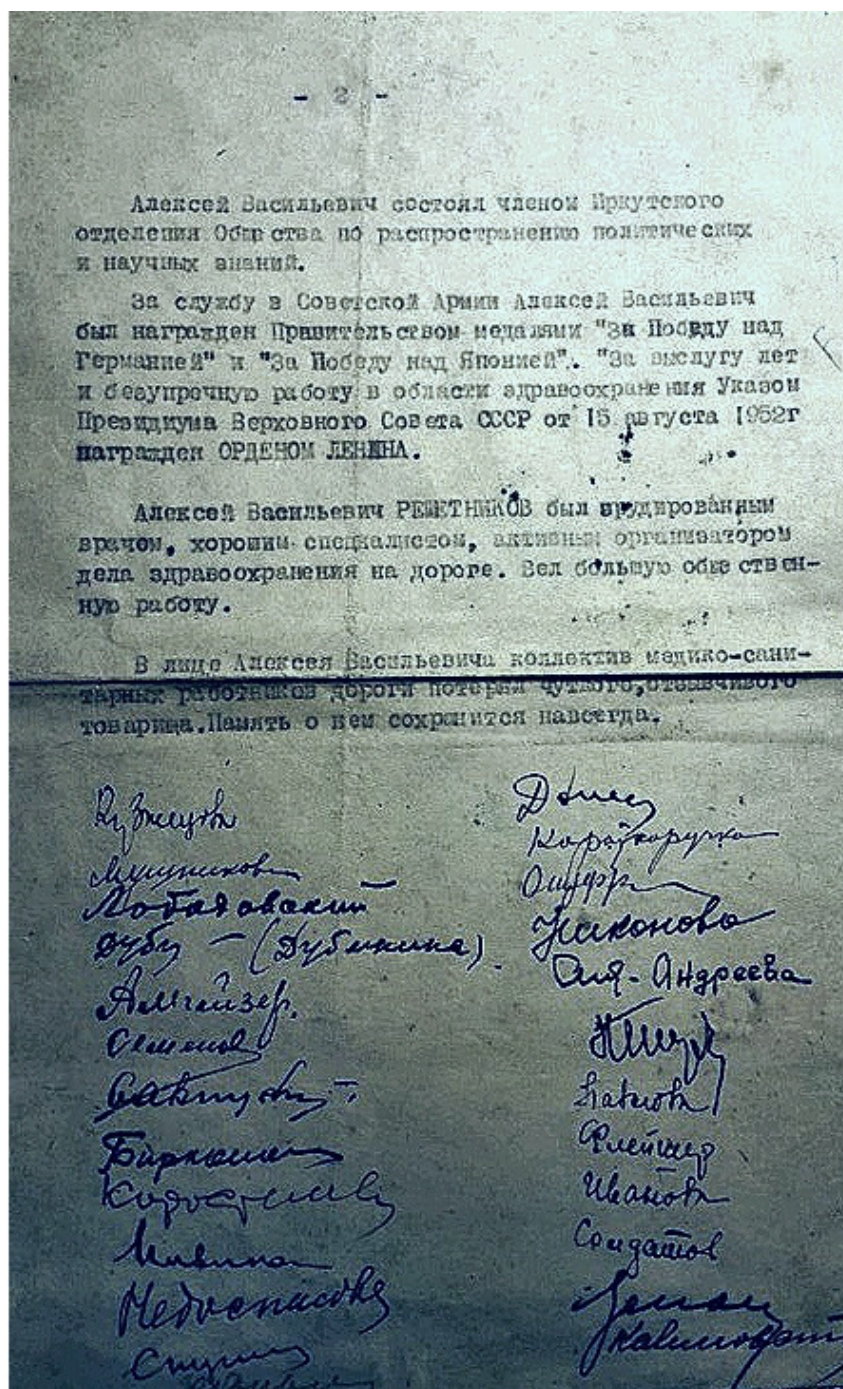 - 2 -
Алексей Васильевич состоял членом Иркутского
отделения Общества по распространению политических
и научных знаний.
За службу в Советской Армии Алексей Васильевич
был награжден Правительством медалями "За Победу над
Германией" и "За Победу над Японией". "За выслугу лет
и безупречную работу в области здравоохранения Указом
Президиума Верховного Совета СССР от 15 августа 1952г
награжден ОРДЕНОМ ЛЕНИНА.
Алексей Васильевич РЕШЕТНИКОВ был эрудированным
врачом, хорошим специалистом, активным организатором
дела здравоохранения на дороге. Вел большую обществен-
ную работу.
В лице Алексея Васильевича коллектив медико-сани-
тарных работников дороги потерял чуткого,отзывчивого
товарища.Память о нем сохранится навсегда.
Кузнецова
Мушникова
Лобадовский
Дубу - (Дубинина).
Семенов
Недоспасова
Никонова
Андреева
Павлова
Флейшер
Иванова
Солдатов